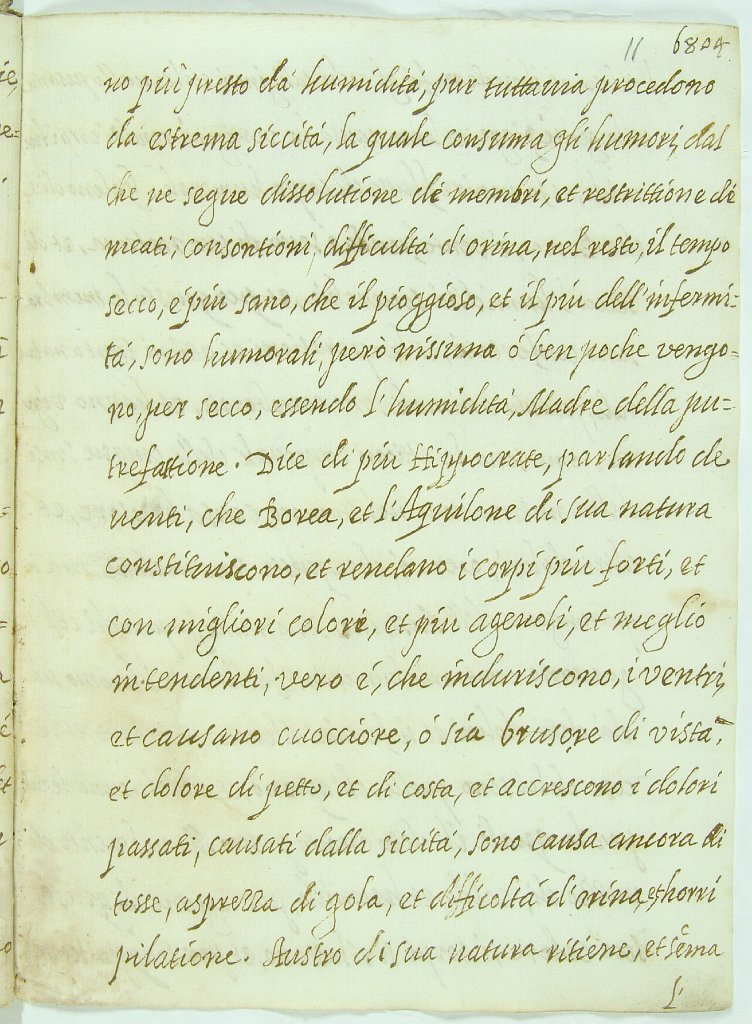 11 6804.
no più presto da humidità, pur tuttavia procedono
dà estrema siccità, la quale consuma gli humori, dal
che ne segue dissolutione dé membri, et restrittione dé
meati, consontioni, difficultà d'orina, nel resto, il tempo
secco, é più sano, che il pioggioso, et il piu dell'infermi=
tá, sono humorali, però nissuna ó ben poche vengo=
no, per secco, essendo l'humidità, Madre della pu=
trefattione. Dice di piu Hippocrate, parlando de
venti, che Borea, et l'Aquilone di sua natura
constituiscono, et rendano i corpi piu forti, et
con migliori colori, et piu agevoli, et meglio
intendenti, vero é, che induriscono, i ventri,
et causano cuocciore, ó sia brusore di vista,
et dolore di petto, et di costa, et accrescono i dolori
passati, causati dalla siccità, sono causa ancora di
tosse, asprezza di gola, et difficoltà d'orina, et horri
pilatione. Austro di sua natura ritiene, et sēma
l'